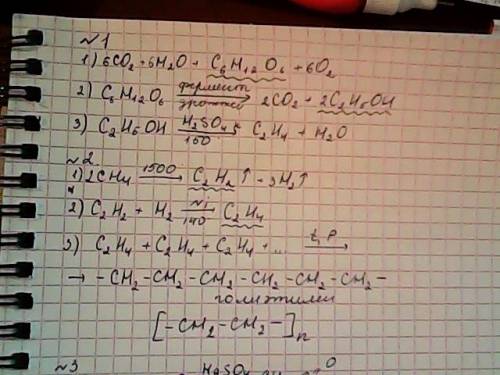 №1
1) 6CO₂ + 6H₂O → C₆H₁₂O₆ + 6O₂
2) C₆H₁₂O₆ фермент дрожжей → 2CO₂ + 2C₂H₅OH
3) C₂H₅OH H₂SO₄ 160 → C₂H₄ + H₂O
№2
1) 2CH₄ 1500 → C₂H₂↑ + 3H₂↑
2) C₂H₂ + H₂ Ni 140 → C₂H₄
3) C₂H₄ + C₂H₄ + C₂H₄ + ... t, P →
→ -CH₂-CH₂-CH₂-CH₂-CH₂-CH₂-
полиэтилен
[-CH₂-CH₂-]n
№3